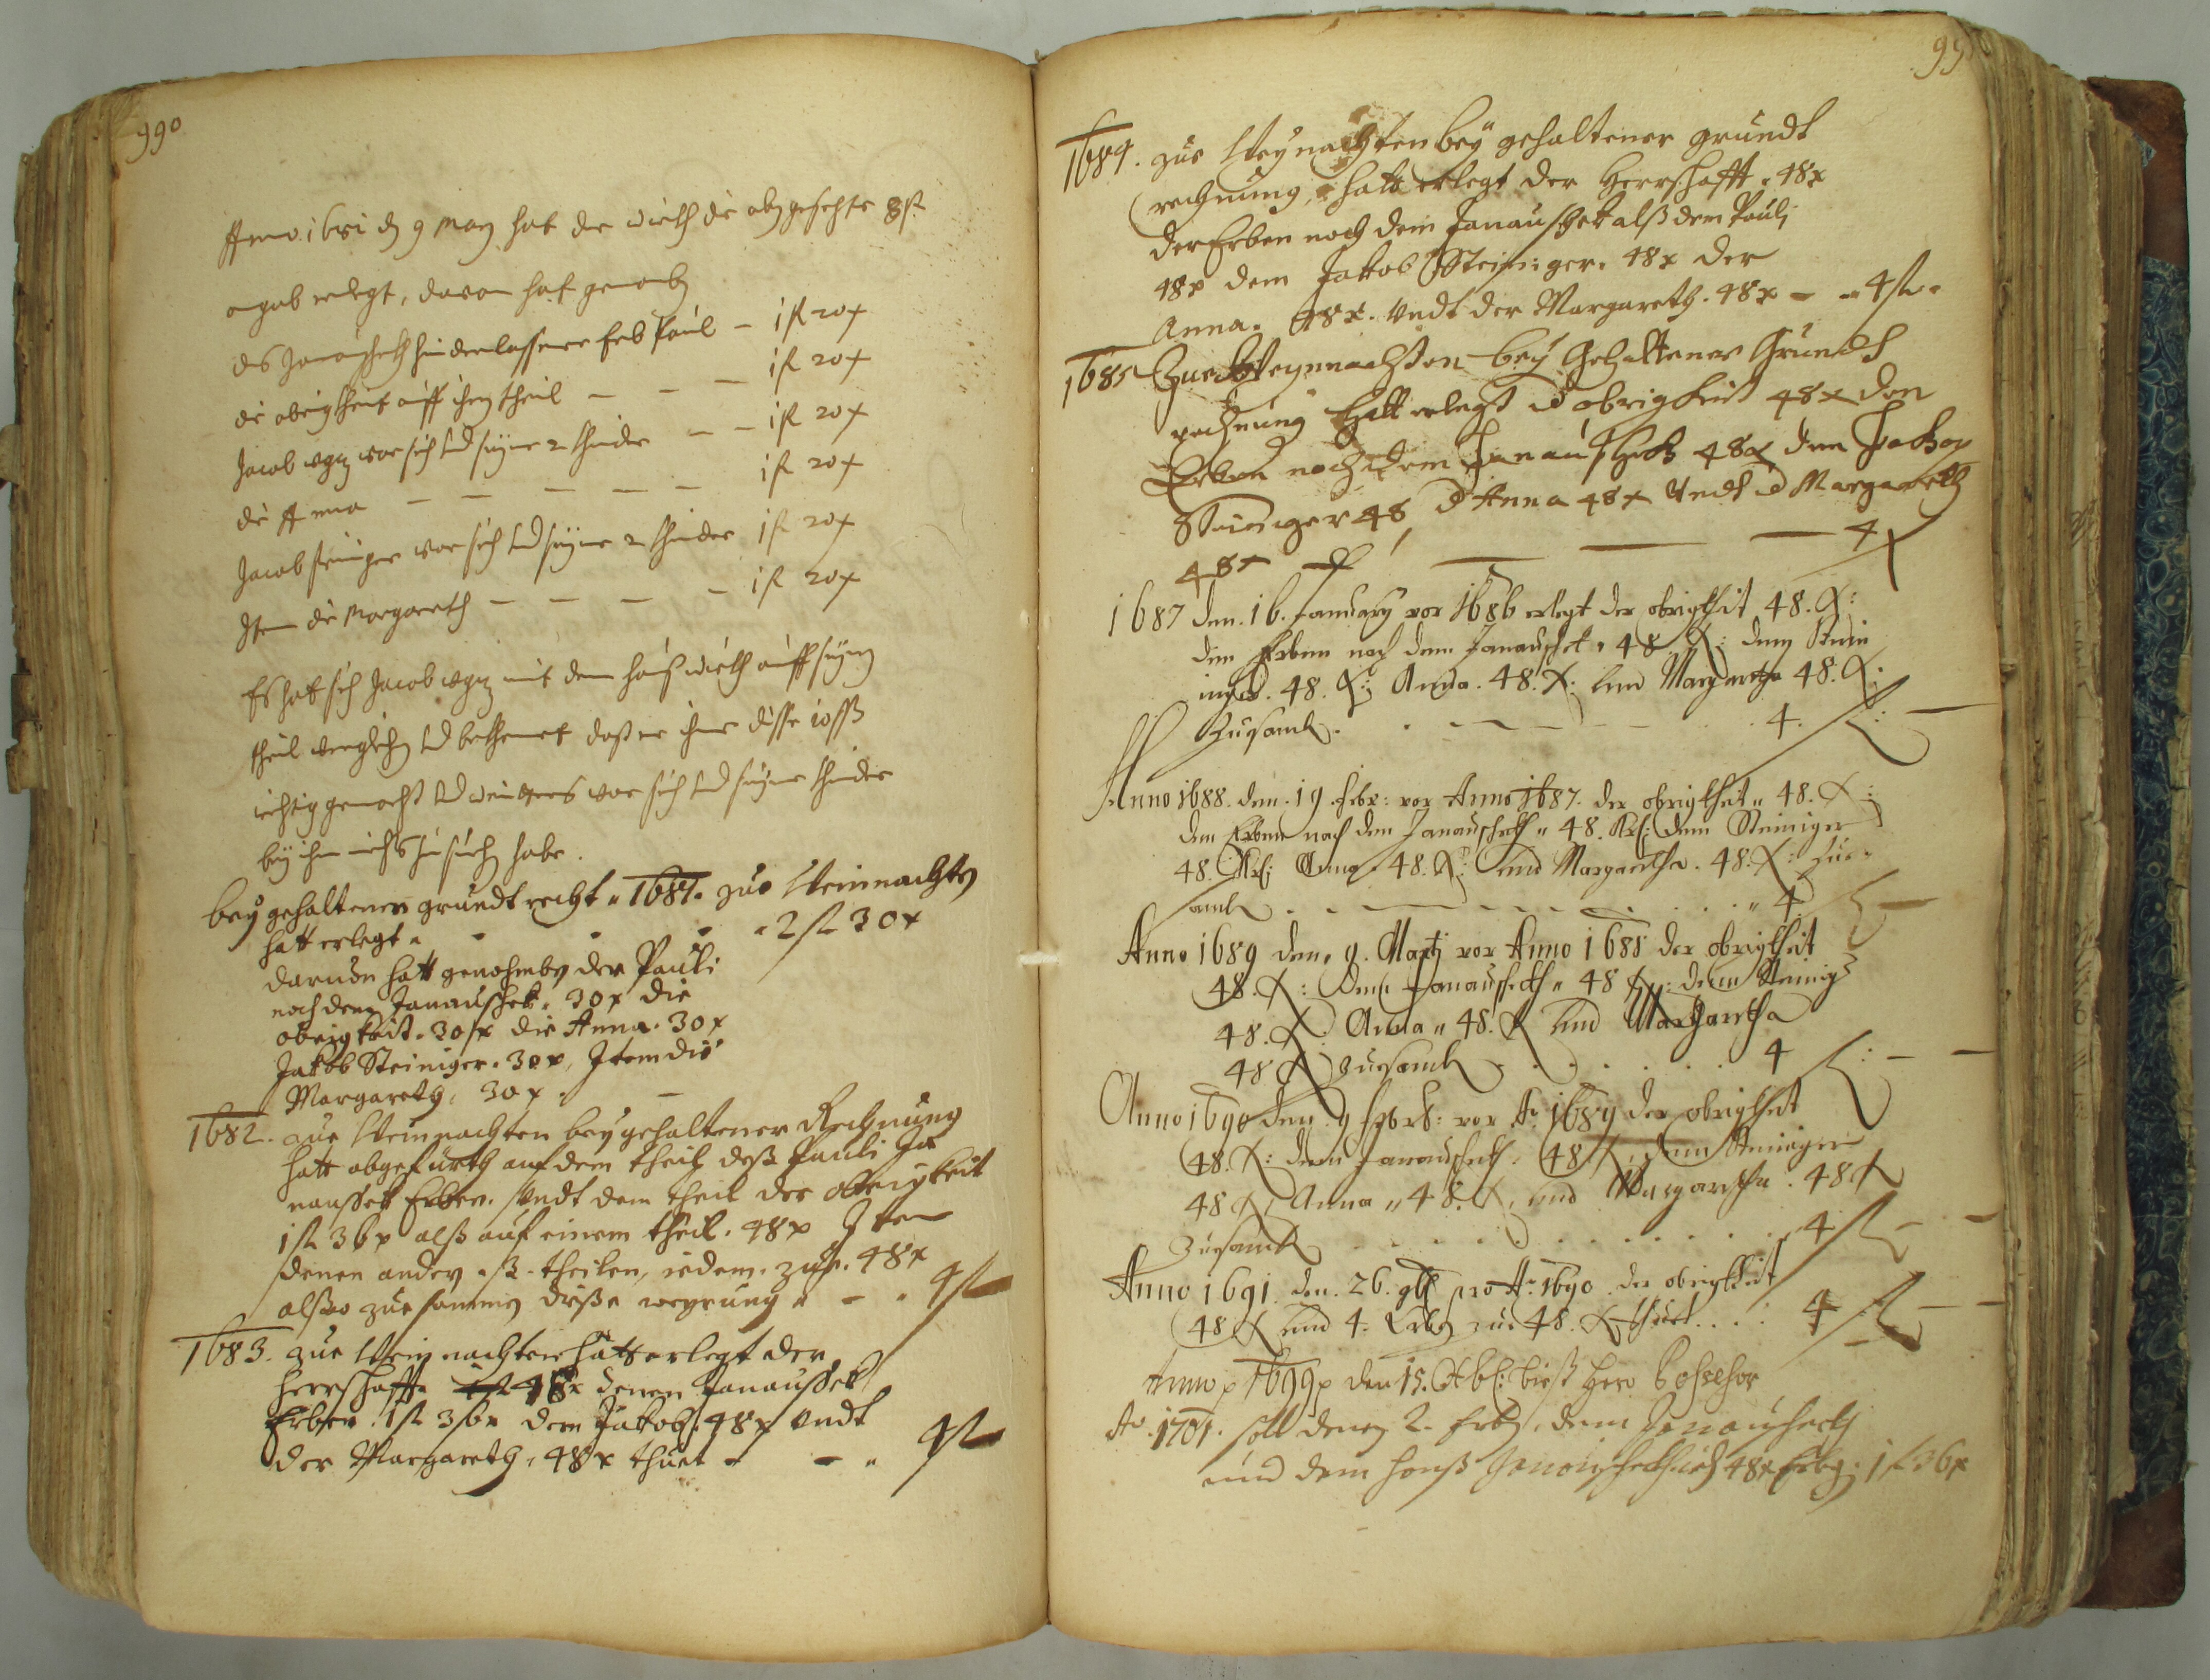 990
Anno 1681 dē 9 May hat der wirth die abgesezte 8 fl
angab erlegt, davon hat genomben
des Janoscheckh hinderlassener Erb Paul – 1 fl 20 x
die obrigkheit auff ihren theil – – – 1 fl 20 x
Jacob vor sich und seyne 2 khinder – – 1 fl 20 x
die Anna – – – – – 1 fl 20 x
Jacob steiniger vor sich und seyne 2 khinder 1 fl 20 x
Item die Margareth – – – – 1 fl 20 x
Es hat sich Jacob mit dem haus wirth auff seynen
theil verglichen und bekhennet daß er ihme disse
richtig gemacht und weiters vor sich und seyne khinder
bey ihm nichts zu suchen habe.
bey gehaltener grundt recht 1681. zue Weinnachten
hatt erlegt – – – 2 fl 30 x
darvon hatt genohmben der Pauli
nach dem Janauschek. 30 x die
obrigkeit. 30 x die Anna. 30 x
Jakob Steiniger. 30 x, Item die
Margareth, 30 x. –
1682. zue Weinnachten bey gehaltener Rechnung
hatt abgefürth auf dem theil deß Pauli Ja
naussek Erben. Undt dem theil der obrigkeit
1 fl 36 x alß auf einem theil. 48 x Item
denen andern 3. theilen, iedem. zu. 48 x
alßo zue sammen dieße werung – . 4 fl
1683. zue Weinnachten hatt erlegt der
herrschafft 48 x denen Janaussek
Erben. 1 fl 36 x dem Jakob. 48 x undt
der Margareth. 48 x thuet – – 4 fl
99
1684. zue Weynachten bey gehaltener grundt
rechnung, hatt erlegt der Herrschafft. 48 x
der Erben noch dem Janauschek alß dem Pauli
48 x dem Jakob Steiniger. 48 x der
Anna. 48 x. undt der Margareth. 48 x – – 4 fl.
1685 Zue Weynnachten bey Gehaltener Grundt
rechnung hatt erlegt d obrigkeit 48 x den
Erben noch dem Janauscheck 48 x dem Jackop
Steiniger 48 d Anna 48 x undt d Margareth
48 x – – – – 4 fl
1687 den. 16. January vor 1686 erlegt der obrigkheit 48. X:
den Erben nach dem Janauschek. 48 X: dem Stein
inger. 48. X: Anna. 48. X: und Margaretha 48. X:
Zusamb. . – – – . . 4. fl: –
Anno 1688. den. 19. Febr: vor Anno 1687. der obrigkheit " 48. X:
dem Erben nach dem Janauscheckh " 48. Kr: dem Steiniger
48. Kr: Anna " 48. X: und Margaretha. 48. X: Zue=
samb . . – – – – . . . " 4 fl –
Anno 1689 den. 9. Martj vor Anno 1688 der obrigkheit
48. X: dem Janauscheckh " 48 X: dem Steinig
48. X: Anna " 48. X und Margaretha
48 X Zuesamb . . . . . . 4 fl: – –
Anno 1690 den. 9 Febr: vor Ao 1689 der obrigkheit
48. X: dem Janauscheckh. 48 X: dem Steiniger
48 X, Anna " 48. X, und Margaretha. 48 X
Zuesamb . . . . . . . . 4 fl – –
Anno 1691. den. 26. pro Ao 1690. der obrigkheit
48 X und 4. Erben zu. 48. X thuet . . . : 4 fl – –
Anno 1699 den 15. bieß
Ao. 1701. soll denen 2. Erben. dem Janauscheckh
und dem Janauscheckh 48 x 1 fl 36 x